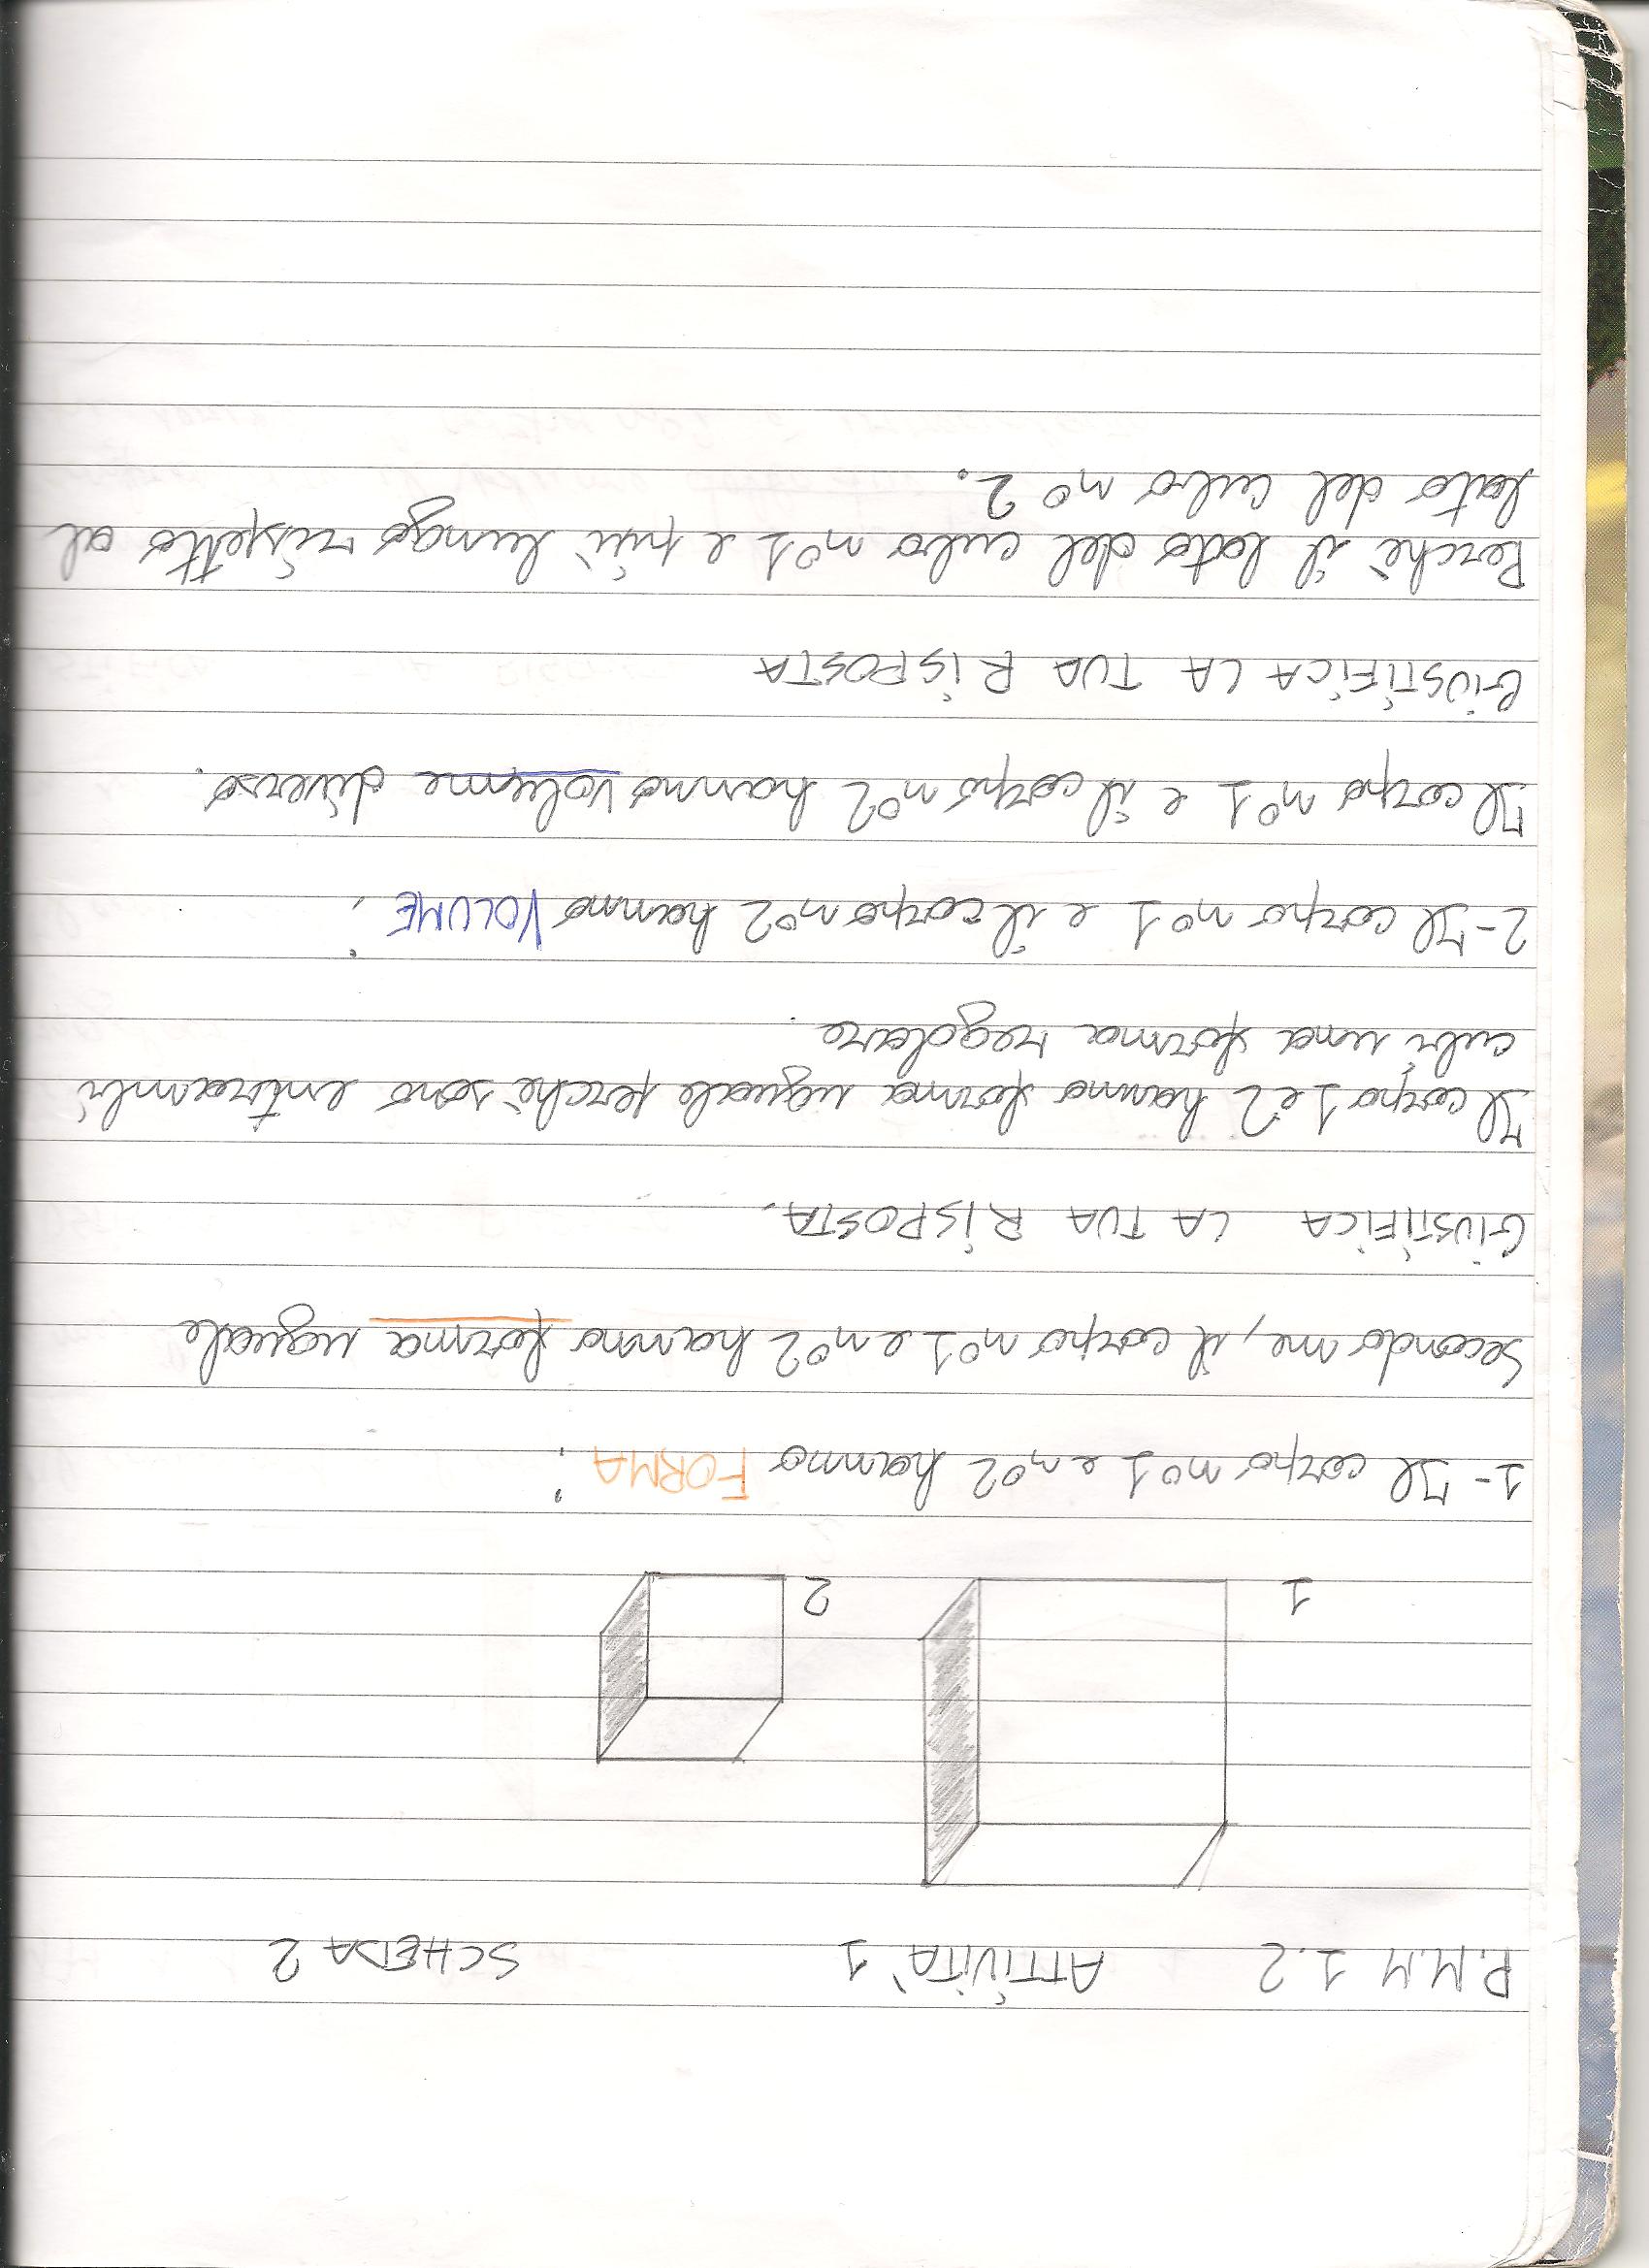 P.M.M 1.2 ATTIVITA' 1 SCHEDA 2
1 2
1- Il corpo n°1 e n°2 hanno FORMA :
Secondo me, il corpo n°1 e n°2 hanno forma uguale
GIUSTIFICA LA TUA RISPOSTA.
Il corpo 1 e 2 hanno forma uguale perchè sono entrambi
cubi una forma regolare.
2- Il corpo n°1 e il corpo n°2 hanno VOLUME :
Il corpo n°1 e il corpo n°2 hanno volume diverso.
GIUSTIFICA LA TUA RISPOSTA
Perchè il lato del cubo n°1 e più lungo rispetto al
lato del cubo n°2.